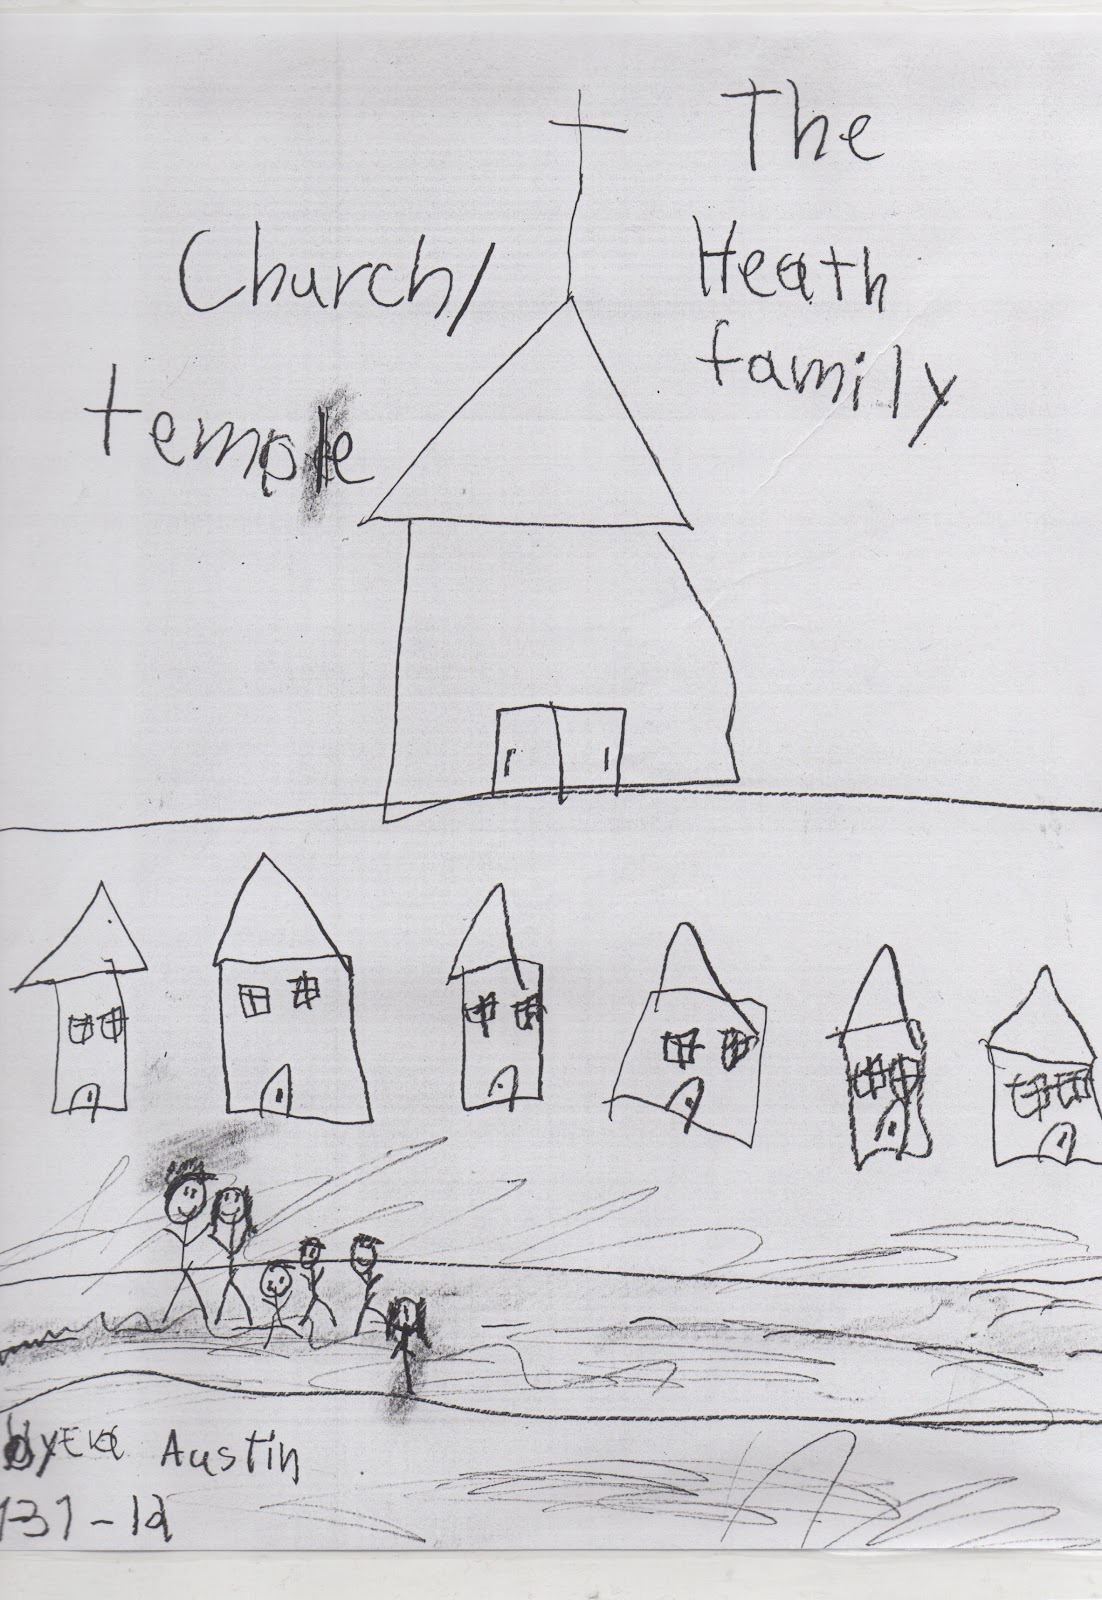 The
Heath
family
Church/
temple
Austin